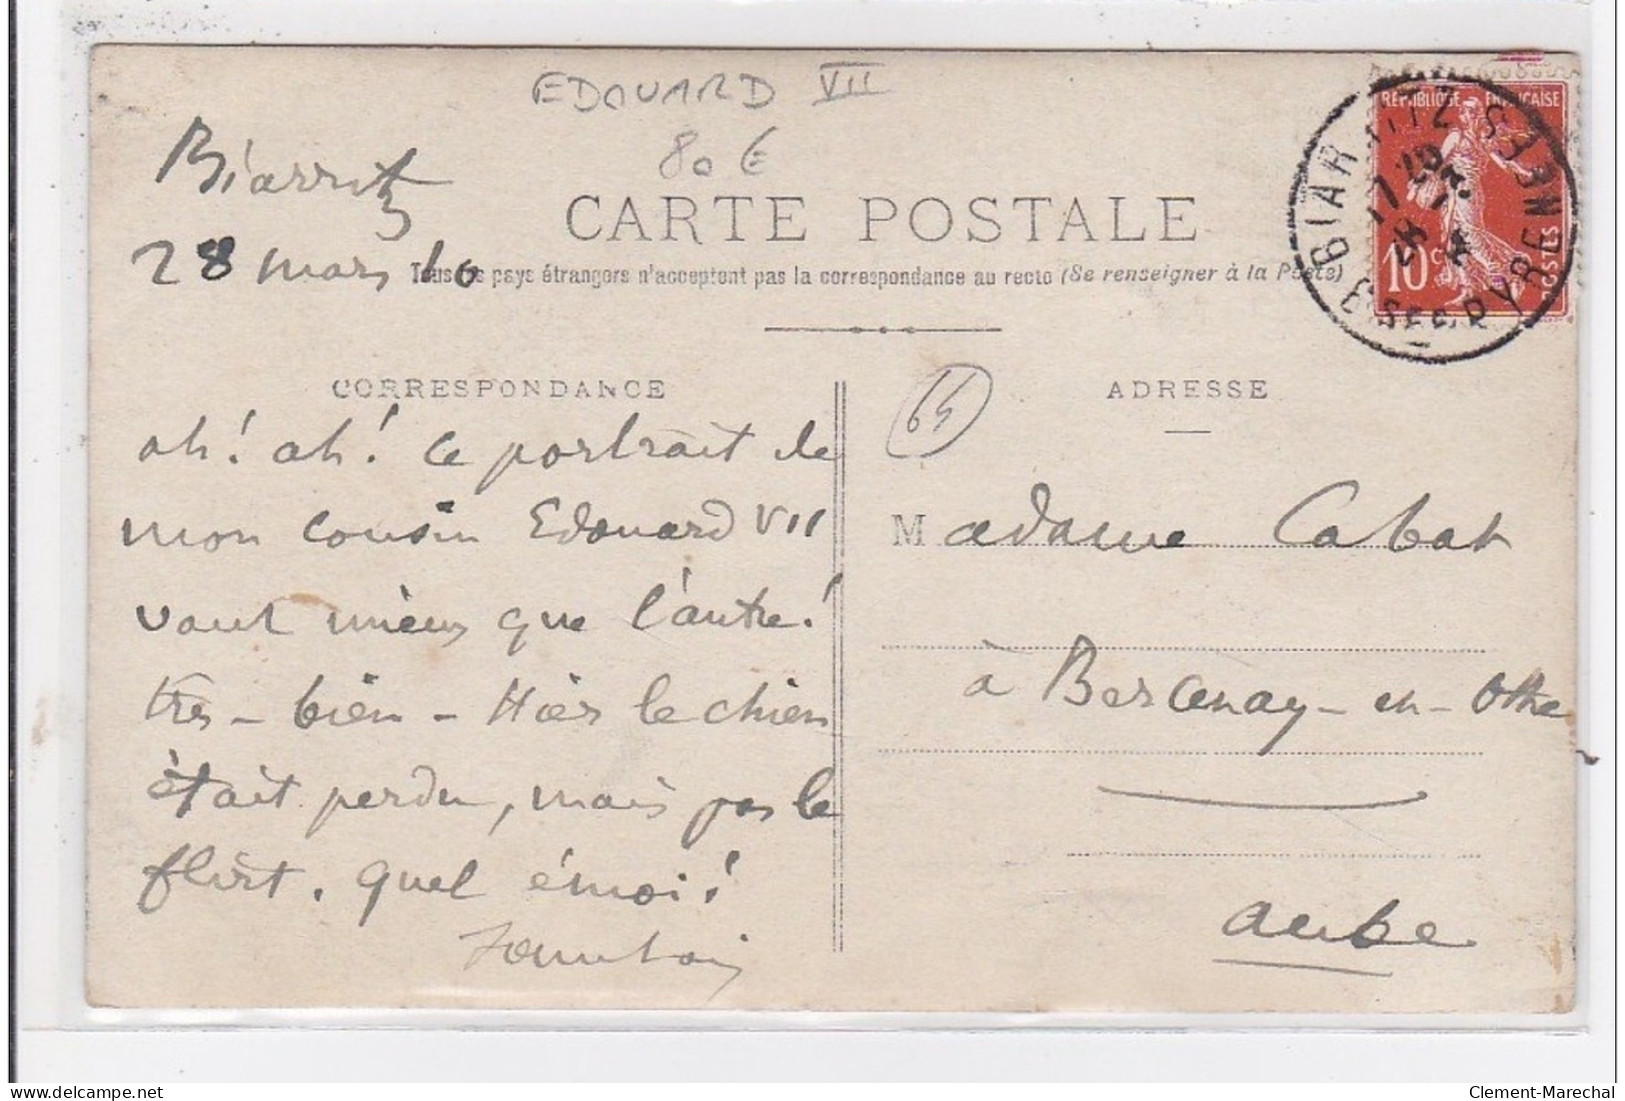 EDOUARD VII
80 €
Biarritz
28 mars 10
CARTE POSTALE
Tous les pays étrangers n'acceptent pas la correspondance au recto (Se renseigner à la Poste)
RÉPUBLIQUE FRANÇAISE
10 C
POSTES
BIARRITZ
BSES PYRENEES
CORRESPONDANCE
ah! ah! ce portrait de
mon cousin Edouard VII
vaut mieux que l'autre!
très-bien - Hier le chien
était perdu, mais pas le
flirt. quel émoi!
64
ADRESSE
Madame Cabat
à Bercenay-en-Othe
Aube
delcampe.net
Clement-Marechal